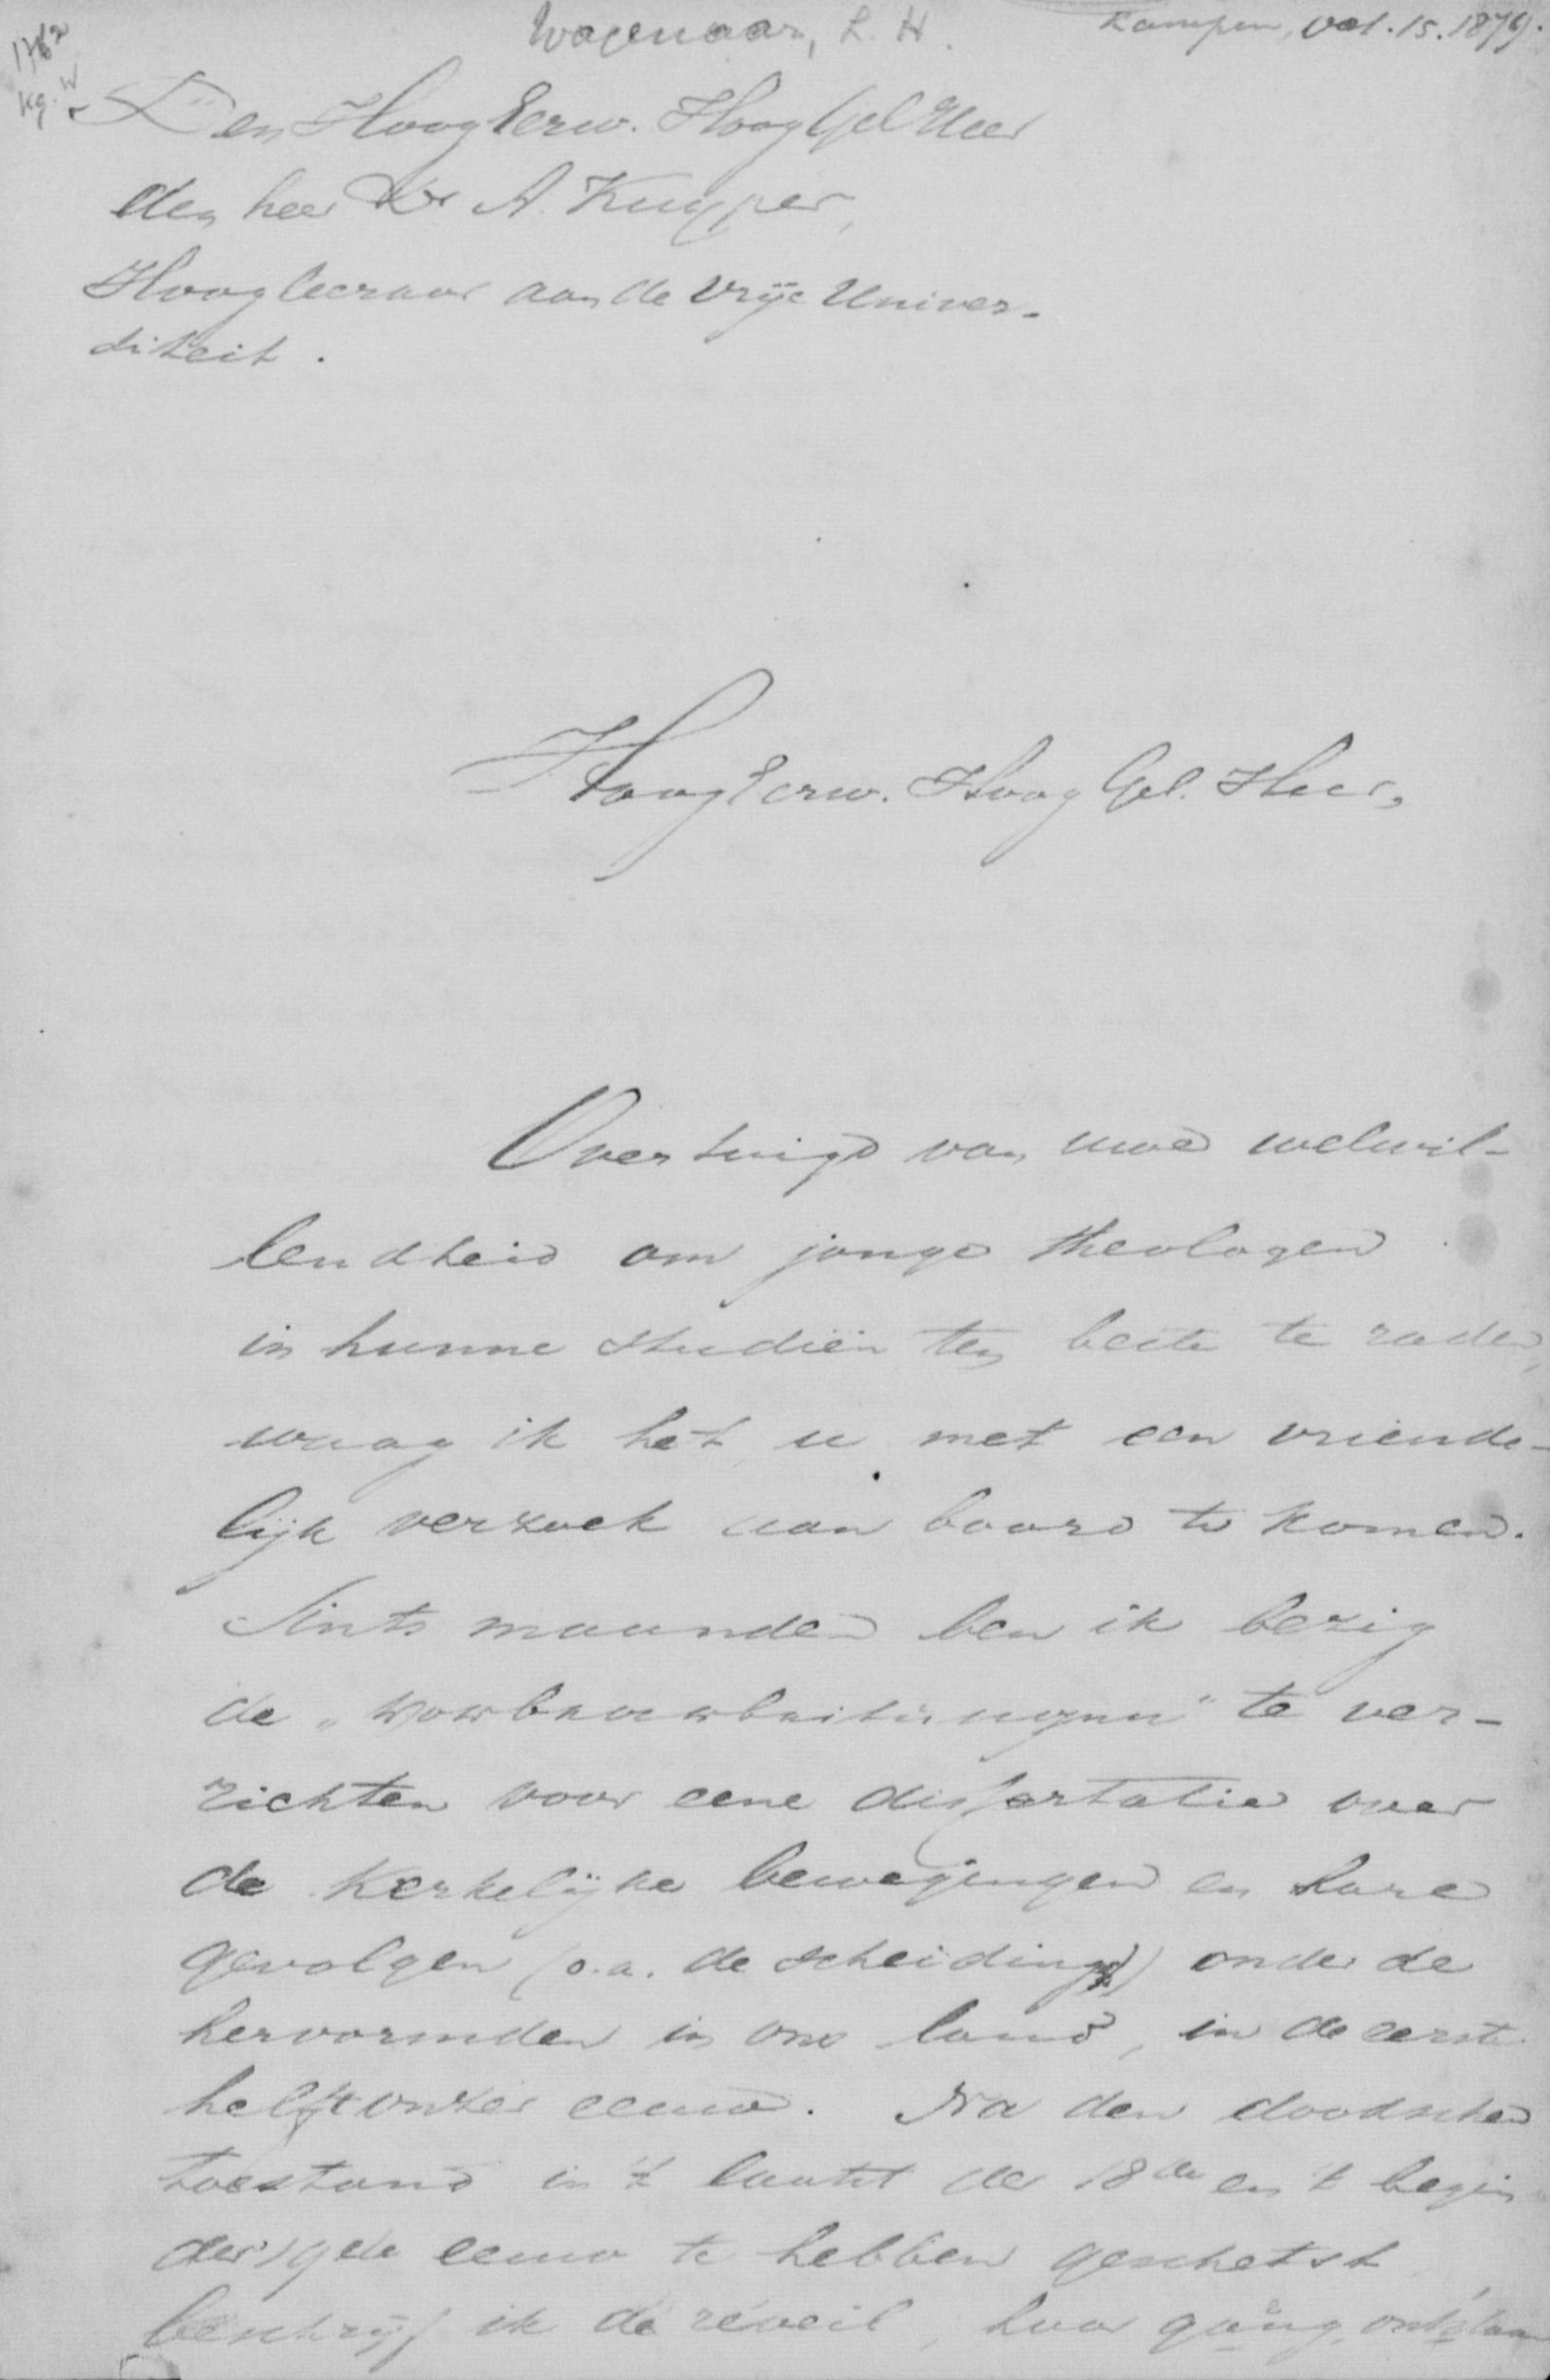 Wagenaar, L. H. Kampen, Oct. 15. 1879.
1762
Kg. W
Den HoogEerw. HoogGel Heer
den heer Dr A. Kuyper,
Hoogleeraar aan de Vrije Univer-
siteit.
HoogEerw. HoogGel. Heer,
Overtuigd van uwe welwil-
lendheid om jonge theologen
in hunne studiën ten beste te raden,
waag ik het, u met een vriende-
lijk verzoek aan boord te komen.
Sints maanden ben ik bezig
de te ver-
richten voor eene dissertatie over
de Kerkelijke bewegingen en hare
gevolgen (o.a. de scheiding) onder de
hervormden in ons land, in de eerste
helft onzer eeuw. Na den doodschen
toestand in 't laatst der 18de en 't begin
der 19de eeuw te hebben geschetst,
beschrijf ik de réveil, haar gang, ontstaan